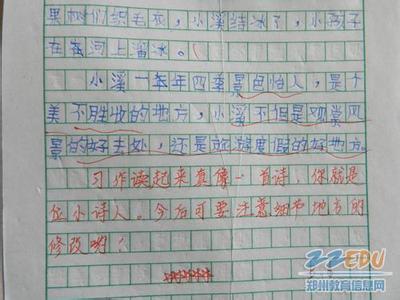 果树们织毛衣，小溪结冰了，小孩子
在在河上溜冰。
小溪一年四季景色怡人，是个
美不胜收的地方，小溪不但是观赏四
景的好去处，还是旅游度假的好地方。
习作读起来真像一首诗，你就是
位小诗人。今后可要注意细节地方的
修改哟！
ZZEDU
郑州教育信息网